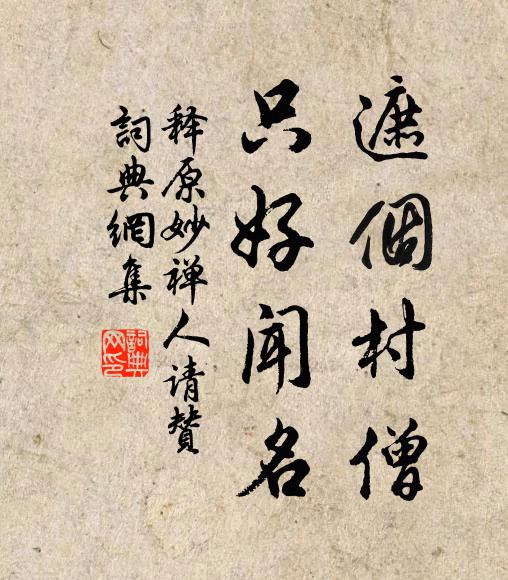 遮個村僧
只好闻名
释原妙禅人请赞
詞典網集
詞典网印